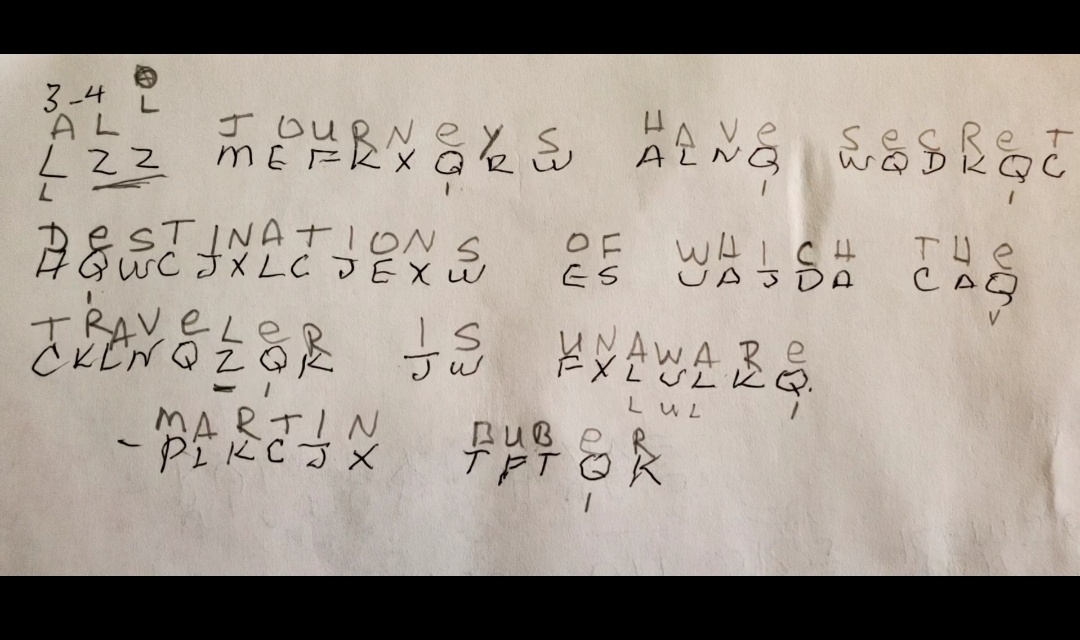 3-4 L
A L JOURNeYS HAVe SeCReT
LZZ MEFKXQRW ALNQ WQDKQC
DeSTINATIONS OF WHICH THe
HQWCJXLCJEXW ES UAJDA CAQ
TRAVeLeR IS UNAWARe
CKLNQZQK JW FXLULKQ.
L U L
- MARTIN BUBeR
PLKCJX TFTQK